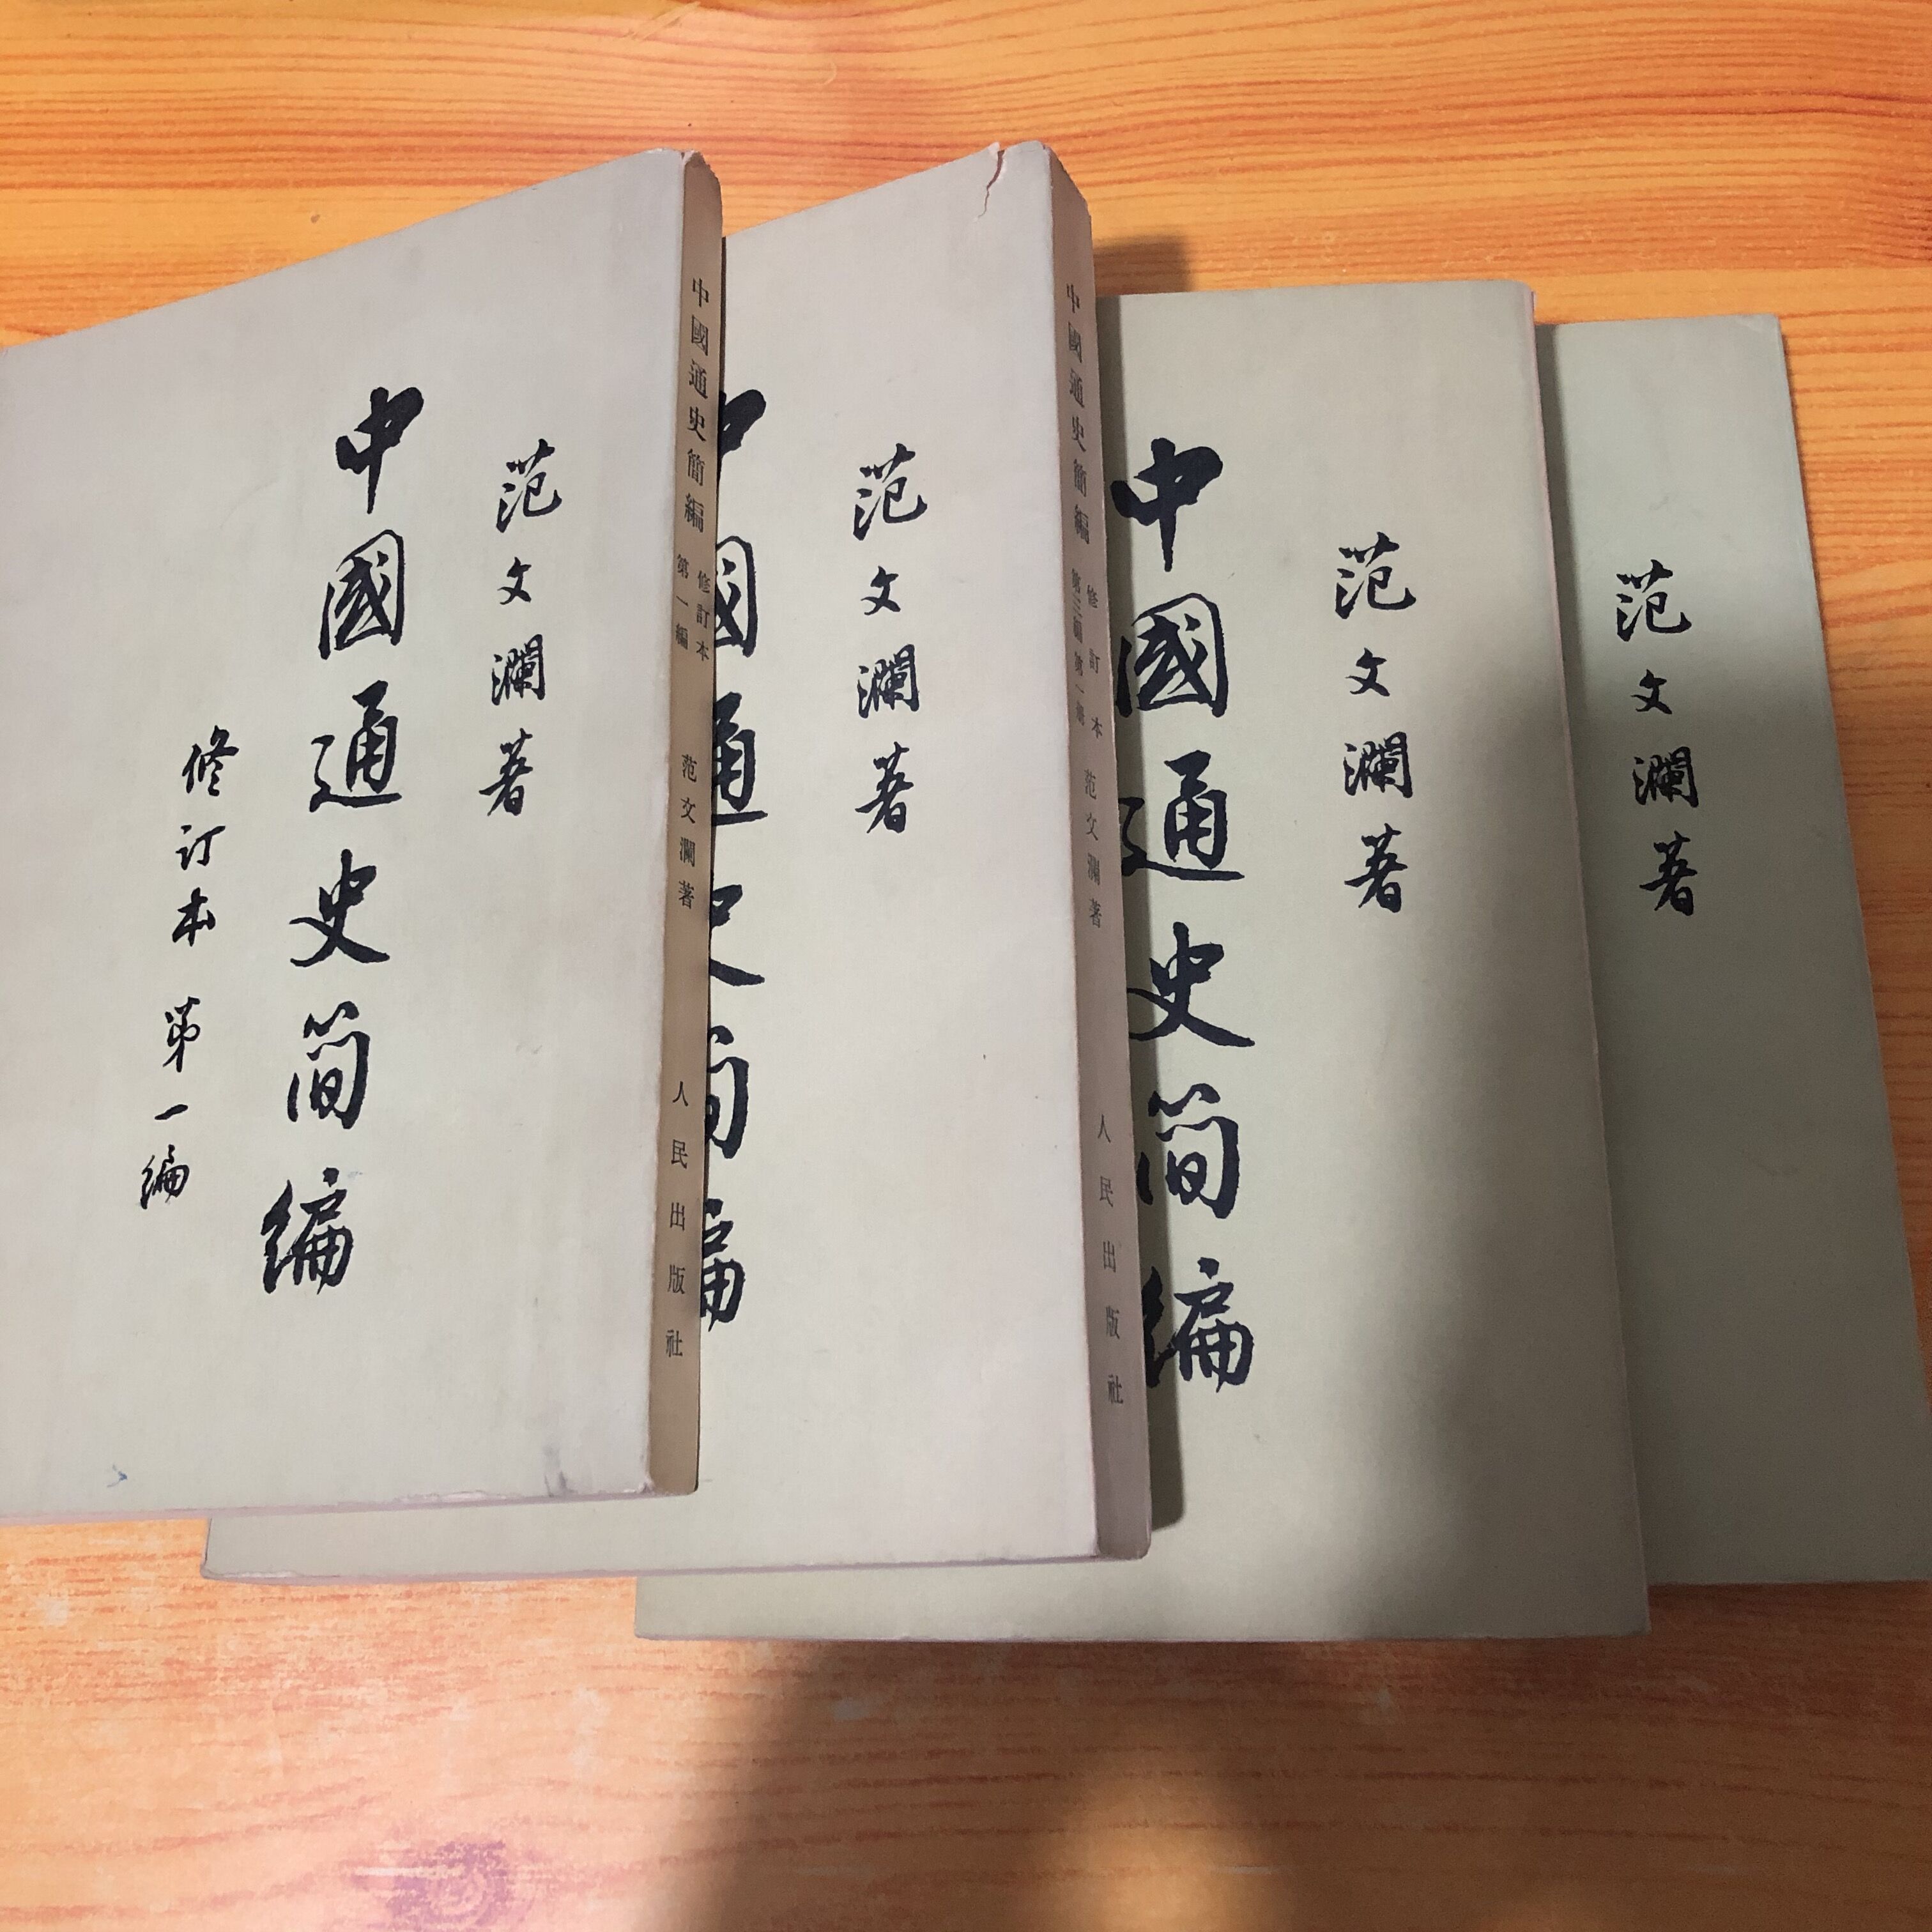 范文瀾著
中國通史简编
修订本 第一编
中國通史簡編 修訂本 第一編 范文瀾著 人民出版社
范文瀾著
中國通史简编
中國通史簡編 修訂本 第三編 第一冊 范文瀾著 人民出版社
范文瀾著
中國通史简编
范文瀾著